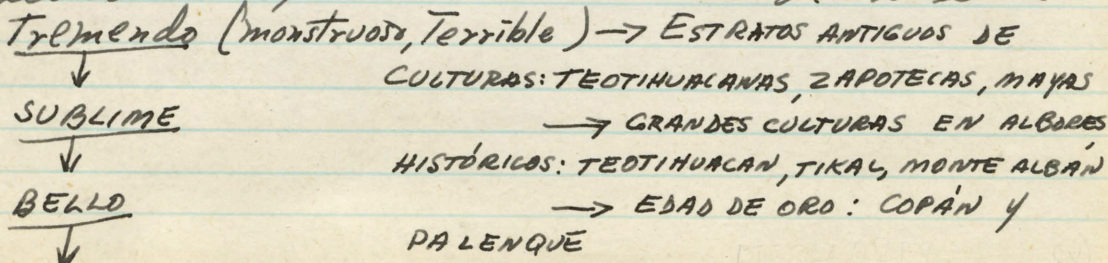 Tremendo (monstruoso, Terrible) → ESTRATOS ANTIGUOS DE
↓ CULTURAS: TEOTIHUACANAS, ZAPOTECAS, MAYAS
SUBLIME → GRANDES CULTURAS EN ALBORES
↓ HISTÓRICOS: TEOTIHUACAN, TIKAL, MONTE ALBÁN
BELLO → EDAD DE ORO: COPÁN Y
↓ PALENQUE